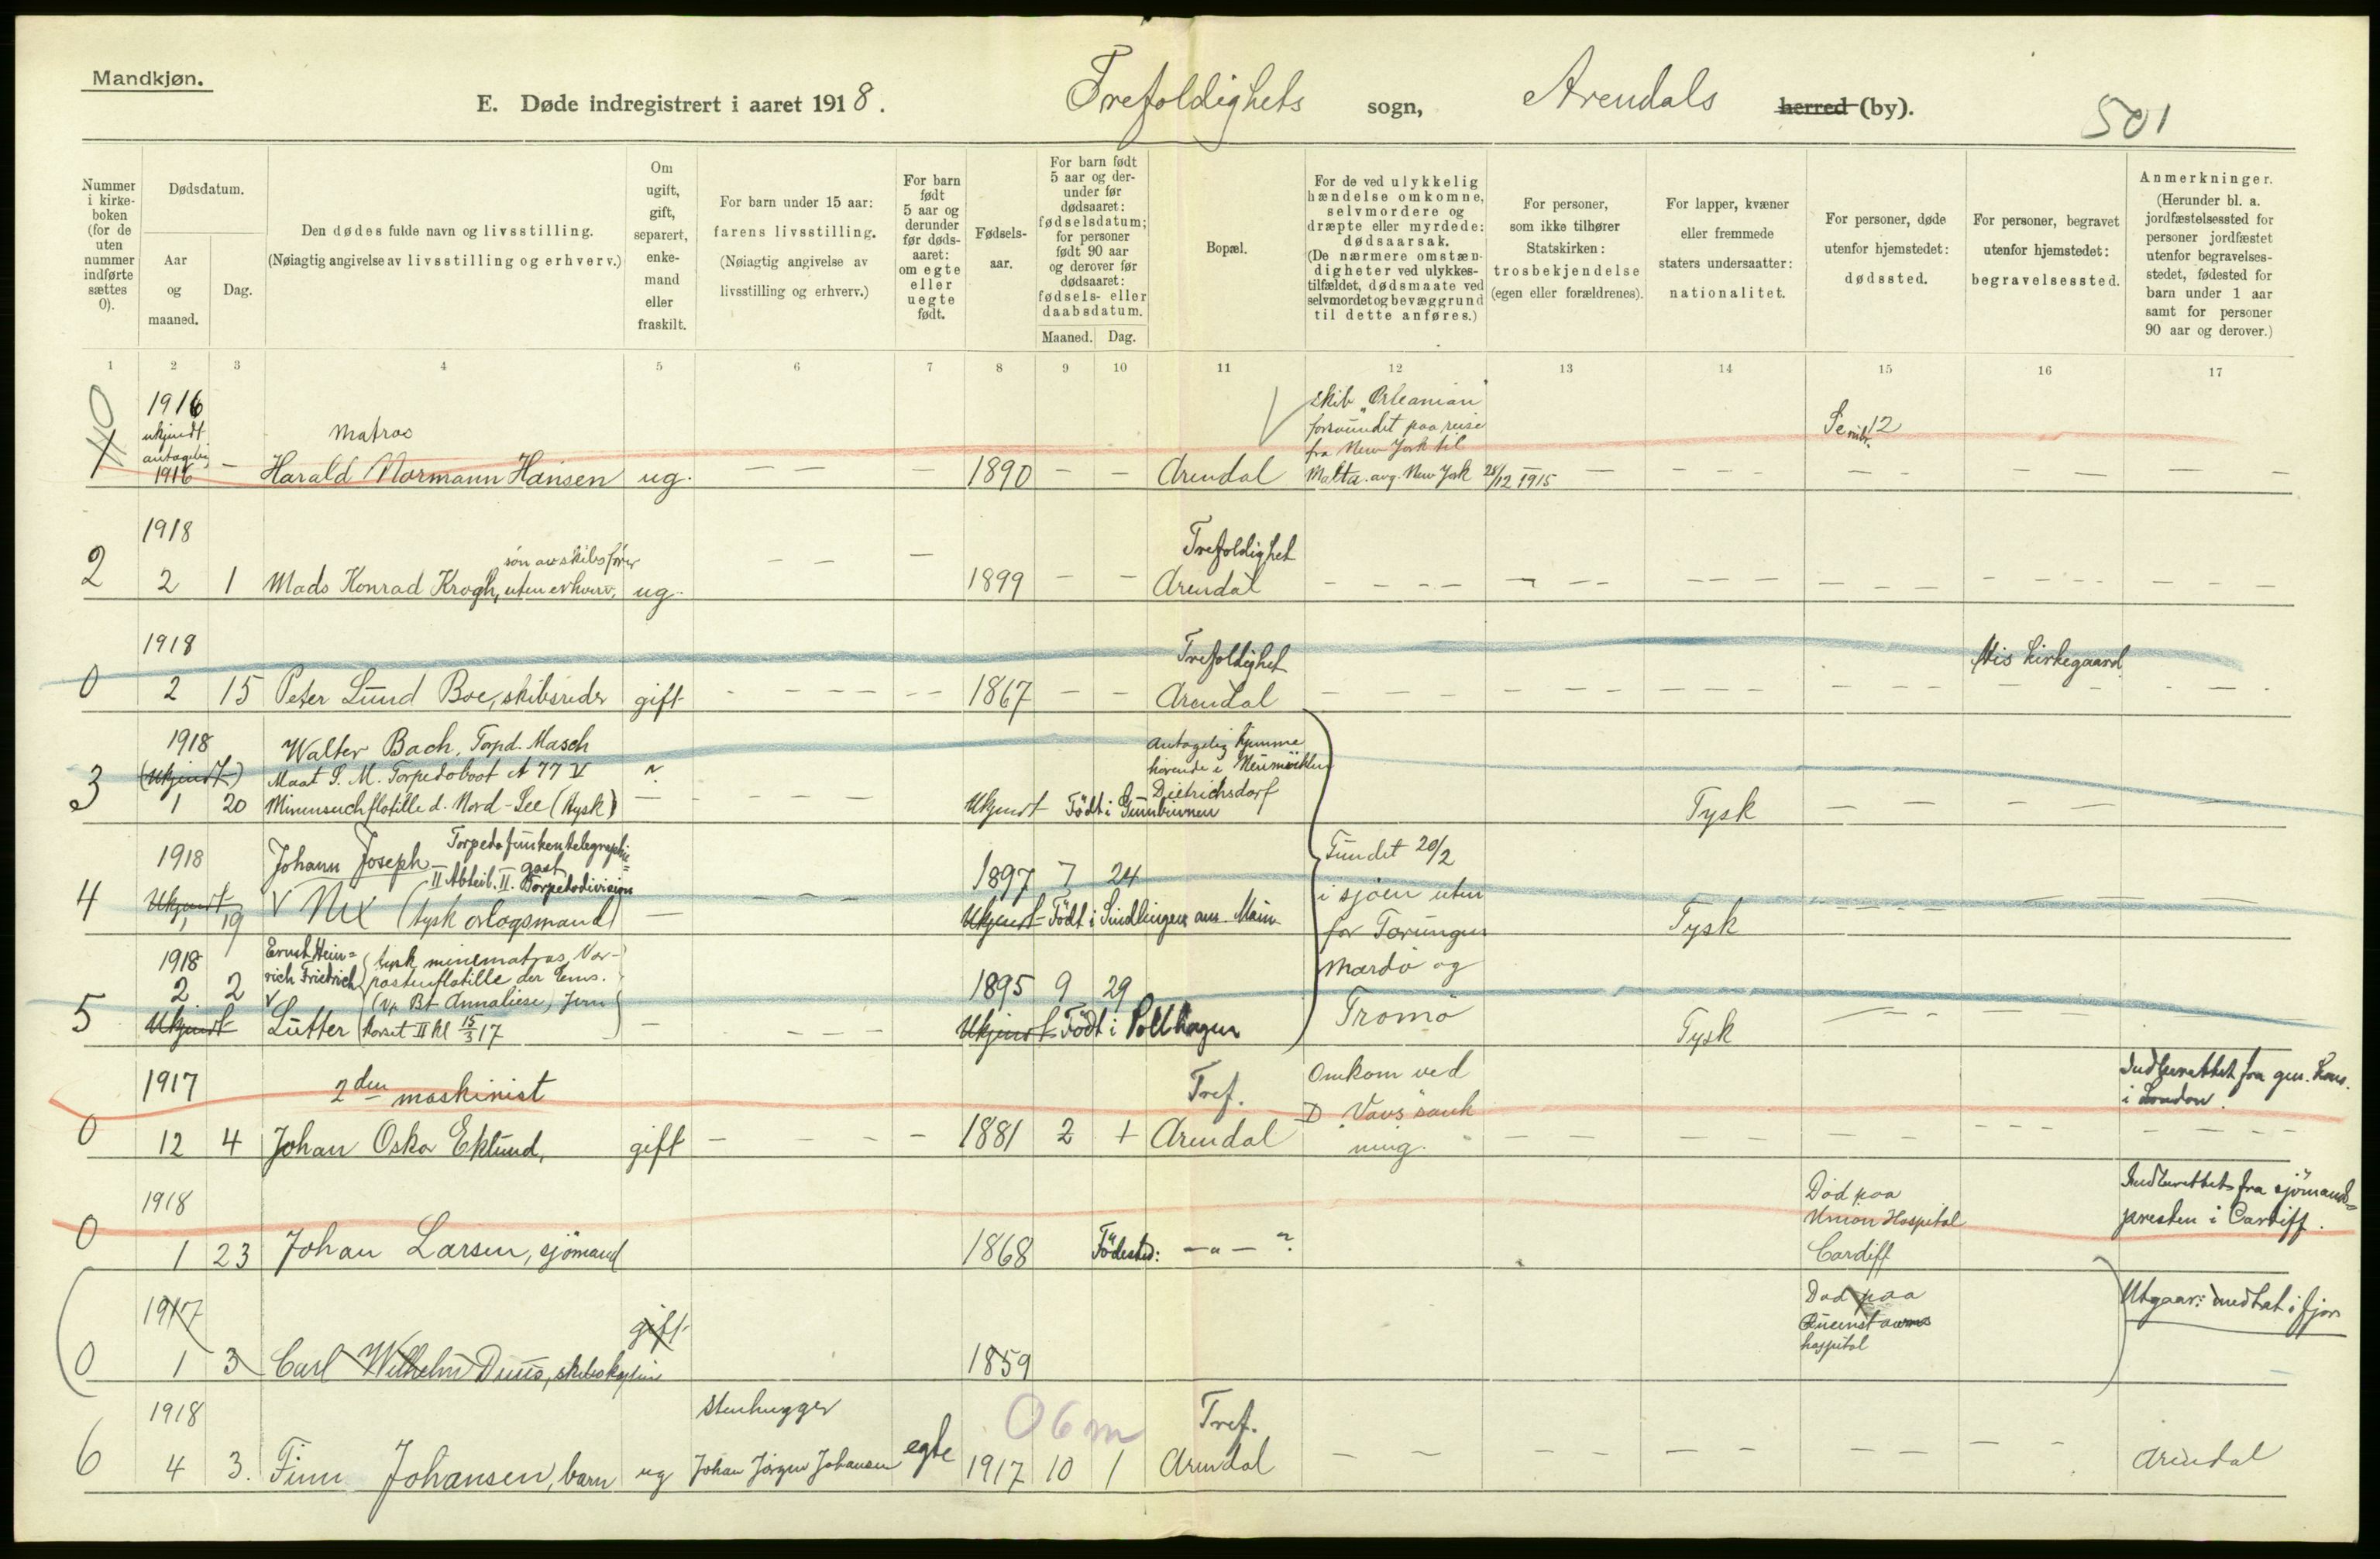 Mandkjøn.
E. Døde indregistrert i aaret 1918.
Trefoldighets sogn, Arendals herred (by).
501
Nummer i kirkeboken (for de uten nummer indførte sættes 0).
Dødsdatum.
Aar og maaned.
Dag.
Den dødes fulde navn og livsstilling.
(Nøiagtig angivelse av livsstilling og erhverv.)
Om ugift, gift, separert, enkemand eller fraskilt.
For barn under 15 aar: farens livsstilling.
(Nøiagtig angivelse av livsstilling og erhverv.)
For barn født 5 aar og derunder før dødsaaret: om egte eller uegte født.
Fødselsaar.
For barn født 5 aar og derunder før dødsaaret: fødselsdatum; for personer født 90 aar og derover før dødsaaret: fødsels- eller daabsdatum.
Maaned. Dag.
Bopæl.
For de ved ulykkelig hændelse omkomne, selvmordere og dræpte eller myrdede: dødsaarsak.
(De nærmere omstændigheter ved ulykkestilfældet, dødsmaate ved selvmordet og bevæggrund til dette anføres.)
For personer, som ikke tilhører Statskirken: trosbekjendelse (egen eller forældrenes).
For lapper, kvæner eller fremmede staters undersaatter: nationalitet.
For personer, døde utenfor hjemstedet: dødssted.
For personer, begravet utenfor hjemstedet: begravelsessted.
Anmerkninger.
(Herunder bl. a. jordfæstelsessted for personer jordfæstet utenfor begravelsesstedet, fødested for barn under 1 aar samt for personer 90 aar og derover.)
1 2 3 4 5 6 7 8 9 10 11 12 13 14 15 16 17
1916
ukjendt
antagelig
1916 –
Matros
Harald Normann Hansen ug. – – – 1890 – – Arendal
skib "Orleanian"
forsvundet paa reise
fra New York til
Malta. avg. New York 28/12 1915
Se 12
2
1918
2 1
søn av skibsfører
Mads Konrad Krogh, uten erhverv, ug. – – – 1899 – –
Trefoldighet
Arendal
0
1918
2 15 Peter Lund Boe, skibsreder gift 1867 – –
Trefoldighet
Arendal
His Kirkegaard
3
1918
(Ukjendt)
1 20
Walter Bach, Torpd. Masch
Maat S. M. Torpedoboot A 77 V
Minensuchflotille d. Nord-See (tysk)
?
Ukjendt Født i Gumbinnen
antagelig hjemme
hørende i
Dietrichsdorf
Tysk
4
1918
Ukjendt
1 19
Johann Joseph Torpedofunkentelegraphie=
gast
II Abteil. II. Torpedodivision
V Nix (tysk orlogsmand)
1897 7 24
Ukjendt Født i Sindlingen am Main
Tysk
Fundet 20/2
i sjøen uten
for Torungen
Mærdø og
Tromø
5
1918
2 2
Ukjendt
Ernst Hein=
rich Friedrich
V
Lütter
tysk minematros, Vor-
postenflotille der Ems.
(V. Bt Annaliese) Jern
korset II Kl 15/3 17
1895 9 29
Ukjendt Født i Pollhagen
Tysk
0
1917
12 4
2den maskinist
Johan Oska Eklund, gift 1881 2 +
Tref.
Arendal
Omkom ved
D "Vaus" sænk
ning.
Indberettet fra gen. Kons.
i London.
0
1918
1 23 Johan Larsen, sjömand 1868 Fødested: – " – ?
Død paa
Union Hospital
Cardiff
Indberettet fra sjömands=
presten i Cardiff.
0
1917
1 3 Carl Wilhelm Duus, skibskaptein gift 1859
Død paa
Queenstowns
hospital
Utgaar: medtat i fjor
6
1918
4 3. Finn Johansen, barn ug
Stenhugger
Johan Jørgen Johansen egte 1917 10 1
06m
Tref.
Arendal
Arendal